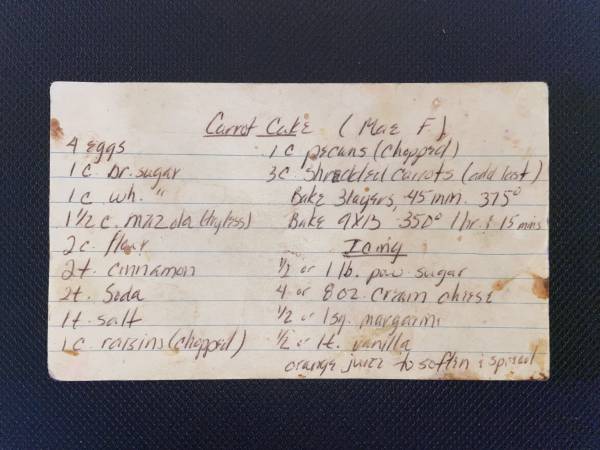 Carrot Cake (Mae F)
4 eggs
1 c. br. sugar
1 c. wh. "
1 1/2 c. mazola (try less)
2 c. flour
2 t. cinnamon
2 t. Soda
1 t. salt
1 c. raisins (chopped)
1 c pecans (chopped)
3 c. Shredded carrots (add last)
Bake 3 layers, 45 min. 375°
Bake 9x13 350° 1 hr. + 15 mins
Icing
1/2 or 1 lb. pow. sugar
4 or 8 oz. cream cheese
1/2 or 1 sq. margarine
1/2 or 1 t. vanilla
orange juice to soften & spread